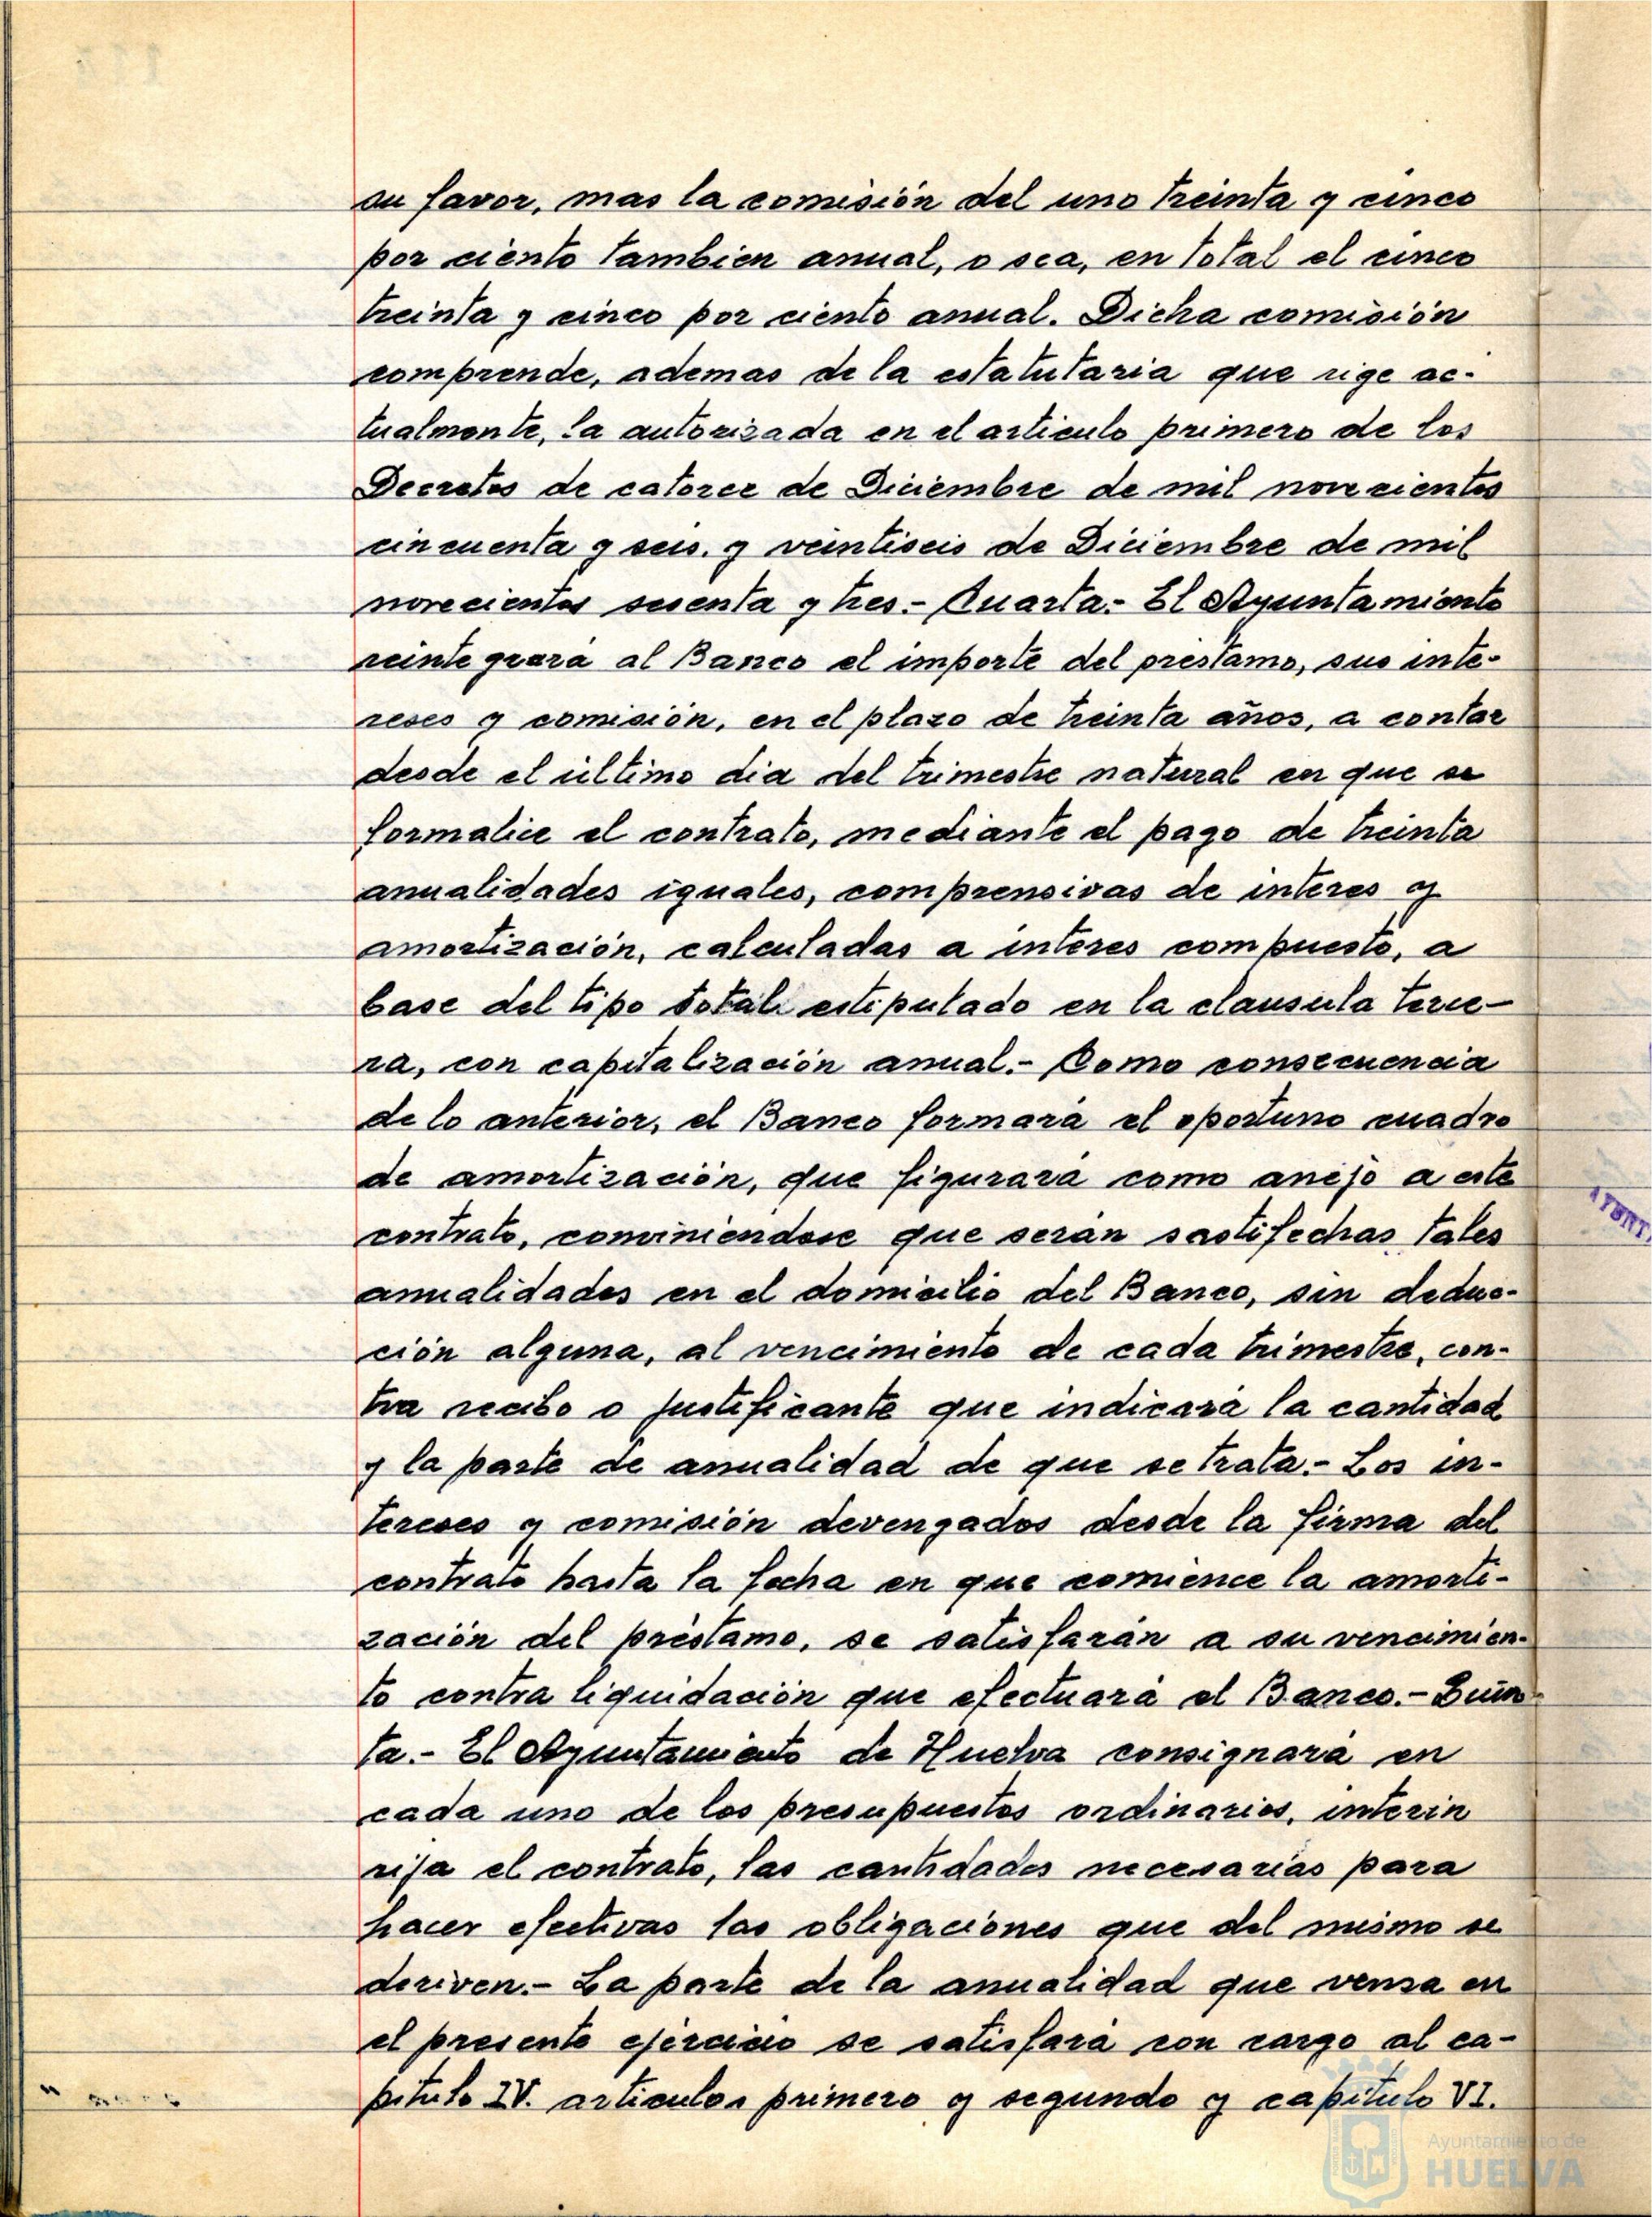 su favor, mas la comisión del uno treinta y cinco
por ciento tambien anual, o sea, en total el cinco
treinta y cinco por ciento anual. Dicha comisión
comprende, ademas de la estatutaria que rige ac-
tualmente, la autorizada en el articulo primero de los
Decretos de catorce de Diciembre de mil novecientos
cincuenta y seis. y veintiseis de Diciembre de mil
novecientos sesenta y tres.- Cuarta.- El Ayuntamiento
reintegrará al Banco el importe del prestamo, sus inte-
reses y comisión, en el plazo de treinta años, a contar
desde el último dia del trimestre natural en que se
formalice el contrato, mediante el pago de treinta
anualidades iguales, comprensivas de interes y
amortización, calculadas a interes compuesto, a
base del tipo total estipulado en la clausula terce-
ra, con capitalización anual.- Como consecuencia
de lo anterior, el Banco formará el oportuno cuadro
de amortización, que figurará como anejo a este
contrato, conviniéndose que serán sastifechas tales
anualidades en el domicilio del Banco, sin deduc-
ción alguna, al vencimiento de cada trimestre, con-
tra recibo o justificante que indicará la cantidad
y la parte de anualidad de que se trata.- Los in-
tereses y comisión devengados desde la firma del
contrato hasta la fecha en que comience la amorti-
zación del préstamo, se satisfarán a su vencimien-
to contra liquidación que efectuará el Banco.- Quin-
ta.- El Ayuntamiento de Huelva consignará en
cada uno de los presupuestos ordinarios, interin
rija el contrato, las cantidades necesarias para
hacer efectivas las obligaciones que del mismo se
deriven.- La parte de la anualidad que venza en
el presente ejercicio se satisfará con cargo al ca-
pitulo IV. articulos primero y segundo y capitulo VI.
Ayuntamiento de
HUELVA